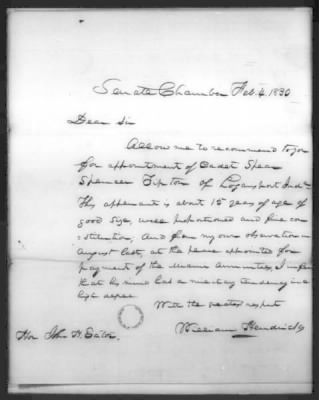 Senate Chamber Feb. 4. 1830
Dear Sir
Allow me to recommend to you
for appointment of Cadet Spear
Spencer Tipton of Logansport Inda
This applicant is about 15 years of age of
good size, well proportioned and fine con
stitution, And from my own observation in
August last, at the place appointed for
payment of the Miami Annuities, I
that his mind had a military tendency in a
high degree.
With the respect
William Hendricks
Hon John H. Eaton.